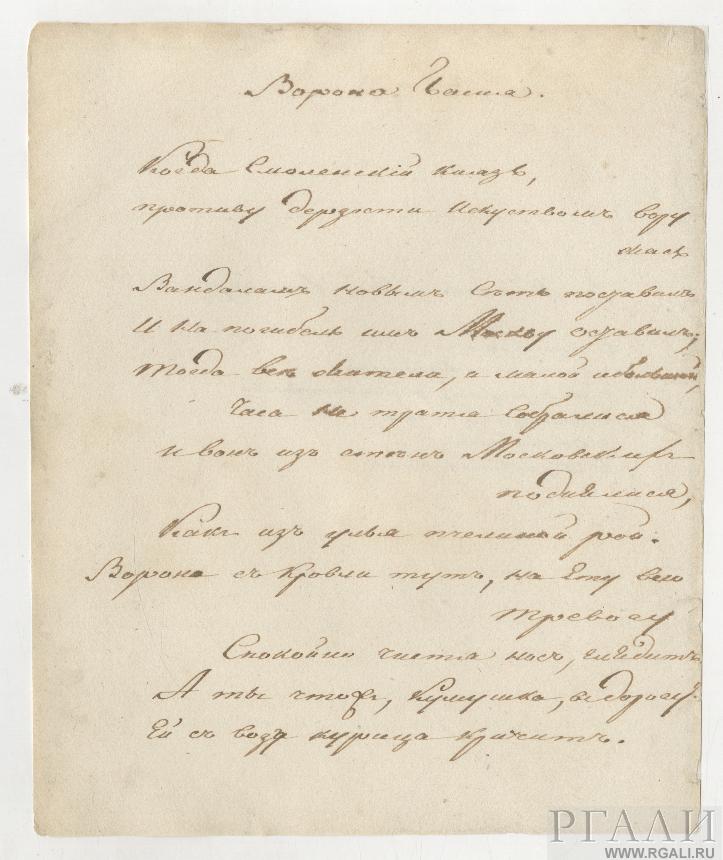 Ворона Басня.
Когда Смоленскій Князь,
противу дерзости Искуствомъ вору
жась
Вандаламъ новымъ Сѣть поставилъ
И на погибель имъ Москву оставилъ;
тогда всѣ жители, и малой и большой,
Часа не тратя Собралися
и вонъ изъ стѣнъ Московскихъ
поднялися,
Какъ изъ улья пчелиной рой.
Ворона съ Кровли тутъ, на Ету всю
тревогу
Спокойно чистя носъ, глядитъ
А ты чтожъ, Кумушка, въ дорогу?
Ей съ возу курица кричитъ.
РГАЛИ
WWW.RGALI.RU